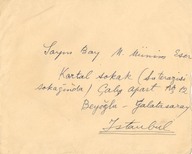 Sayın Bay M. Münim Esor
Kartal sokak (Suterazisi
sokağında) Çalış Apart No 2
Beyoğlu - Galatasaray
Istanbul